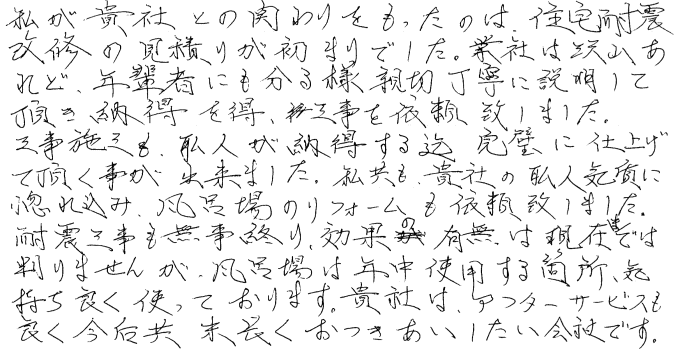 私が貴社との関わりをもったのは、住宅耐震
改修の見積りが初まりでした。業社は沢山あ
れど、年輩者にも分る様親切丁寧に説明して
頂き納得を得、工事を依頼致しました。
工事施工も、私人が納得する迄完璧に仕上げ
て頂く事が出来ました。私共も、貴社の職人気質に
惚れ込み、風呂場のリフォームも依頼致しました。
耐震工事も無事終り、効果の有無は現在では
判りませんが、風呂場は年中使用する箇所、気
持ち良く使っております。貴社は、アフターサービスも
良く今后共末長くおつきあいしたい会社です。